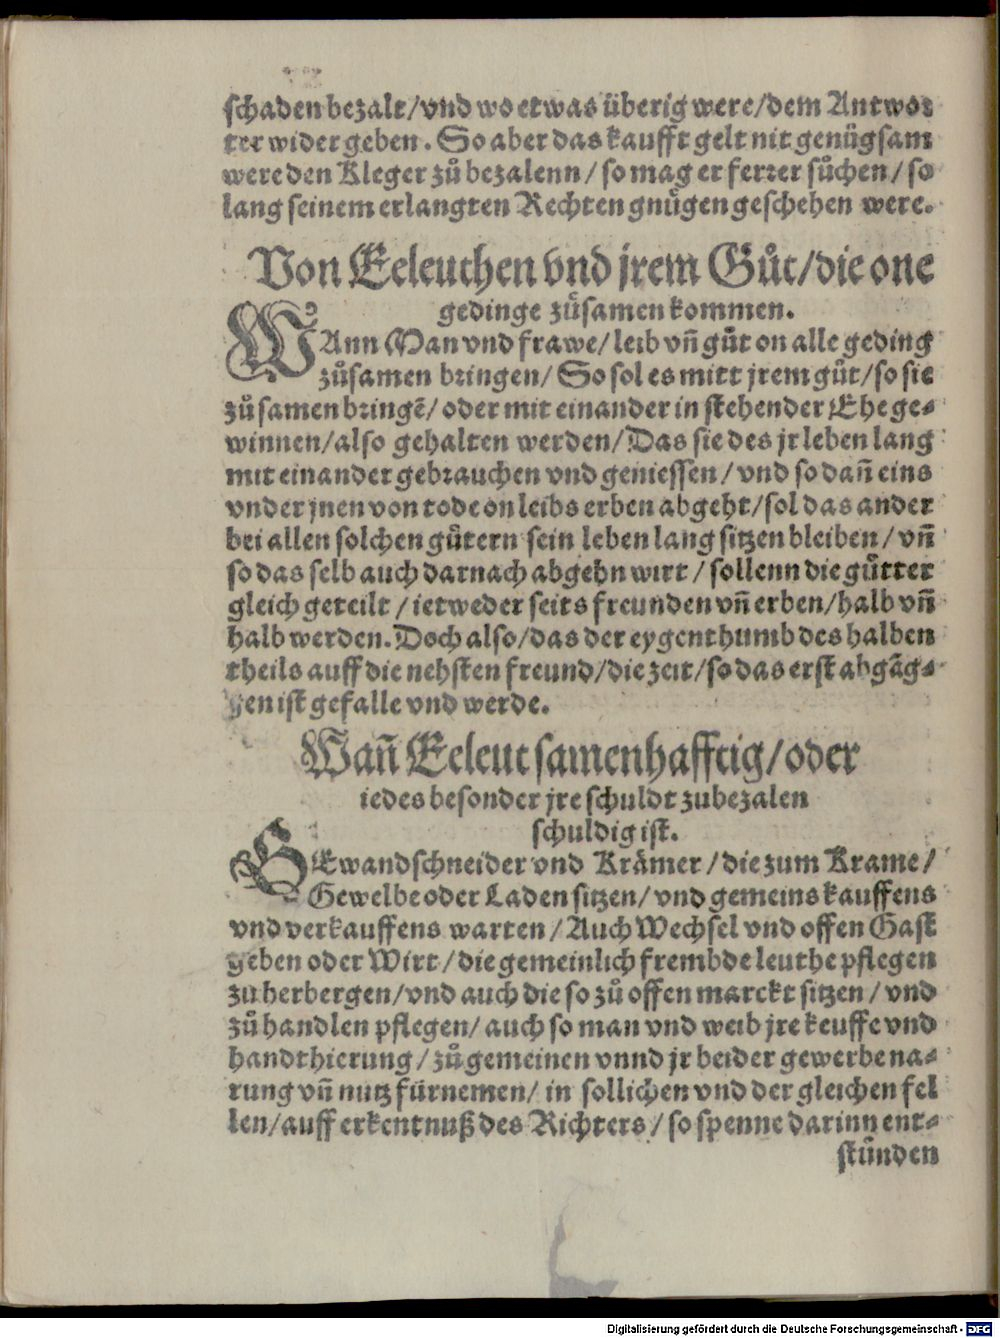 schaden bezalt/vnd wo etwas überig were/dem Antwor
ter wider geben. So aber das kaufft gelt nit genůgsam
were den Kleger zů bezalenn/ so mag er ferrer sůchen/ so
lang seinem erlangten Rechten gnůgen geschehen were.
Von Eeleuthen vnd jrem Gůt/die one
gedinge zůsamen kommen.
WAnn Man vnd frawe/ leib vñ gůt on alle geding
zůsamen bringen/ So sol es mitt jrem gůt/so sie
zů samen bringẽ/ oder mit einander in stehender Ehe ge-
winnen/also gehalten werden/ Das sie des jr leben lang
mit einander gebrauchen vnd geniessen/ vnd so dañ eins
vnder jnen von tode on leibs erben abgeht/sol das ander
bei allen solchen gůtern sein leben lang sitzen bleiben/ vñ
so das selb auch darnach abgehn wirt/ sollenn die gůtter
gleich geteilt/ ietweder seits freunden vñ erben/halb vñ
halb werden. Doch also/das der eygenthumb des halben
theils auff die nehsten freund/die zeit/so das erst abgãg-
gen ist gefalle vnd werde.
Wañ Eeleut samenhafftig/oder
iedes besonder jre schuldt zubezalen
schuldig ist.
GEwandschneider vnd Krämer/die zum Krame/
Gewelbe oder Laden sitzen/ vnd gemeins kauffens
vnd verkauffens warten/ Auch Wechsel vnd offen Gast
geben oder Wirt/die gemeinlich frembde leuthe pflegen
zu herbergen/vnd auch die so zů offen marckt sitzen/ vnd
zů handlen pflegen/ auch so man vnd weib jre keuffe vnd
handthierung/ zů gemeinen vnnd jr beider gewerbe na-
rung vñ nutz fürnemen/ in sollichen vnd der gleichen fel
len/auff erkentnuß des Richters/ so spenne darinn ent-
stůnden
Digitalisierung gefördert durch die Deutsche Forschungsgemeinschaft - DFG